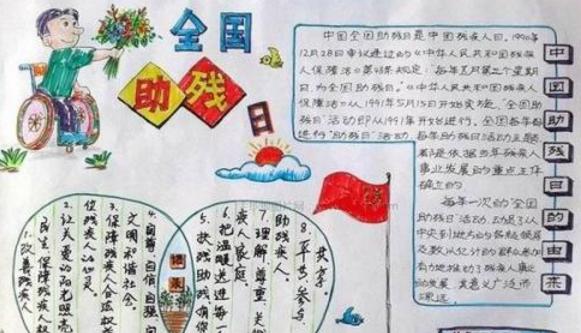 全国
助残
日
中国助残日的由来
中国全国助残日是中国残疾人节日。1990年
12月28日审议通过的《中华人民共和国残疾
人保障法》第48条规定："每年五月第三个星期
日,为全国助残日。"《中华人民共和国残疾人
保障法》从1991年5月15日开始实施,"全国助
残日"活动即从1991年开始进行。全国每年都
进行"助残日"活动,每年助残日活动主题
都是依据当年残疾人
事业发展的重点工作
确立的。
每年一次的"全国
助残日"活动,动员了从
中央到地方的各级领导
及数以亿计的群众参加
有力地推动了残疾人事业
的发展,其意义广泛而
深远。
1.改善残疾人
民生 保障残疾人权
2.让关爱的阳光照亮
每位残疾人的心灵。
3.保障残疾人合法权益
文明和谐社会。
4.自尊 自信 自强 自
5.扶残助残 有你
6.把温暖送进每一个残
疾人家庭。
7.理解 尊重 关
助残疾人。
8.平等 参与
共享。